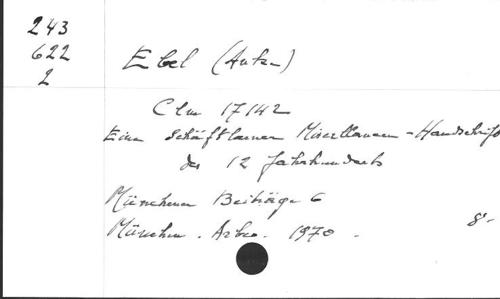 243
622
2
Ebel (Anton)
Clm 17142
Eine Schäftlarner Miscellaneen-Handschrift
des 12 Jahrhunderts
Münchener Beiträge 6
München. Arbeo. 1970. 8°